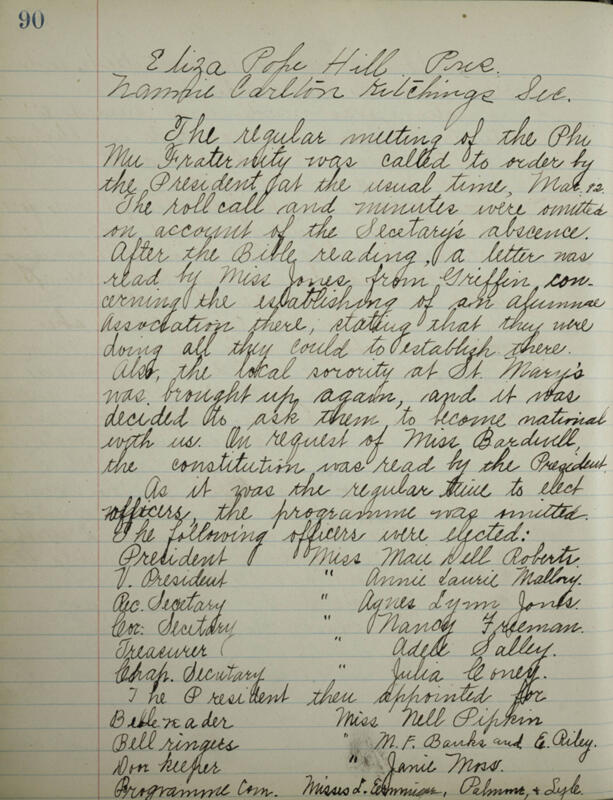 90
Eliza Pope Hill Pres.
Nannie Carlton Kitchings Sec.
The regular meeting of the Phi
Mu Fraternity was called to order by
the President at the usual time, Mar. 12.
The roll call and minutes were omitted
on account of the Secetary's abscence.
After the Bible reading, a letter was
read by Miss Jones from Griffin con-
cerning the establishing of an alumnae
Association there, stating that they were
doing all they could to establish there.
Also, the local sorority at St. Mary's
was brought up again, and it was
decided to ask them to become national
with us. On request of Miss Bardwell,
the constitution was read by the President.
As it was the regular time to elect
officers, the programme was omitted.
The following officers were elected:
President Miss Mau Dell Roberts.
V. President " Annie Laurie Mallory.
Rec. Secetary " Agnes Lynn Jones.
Cor. Secetary " Nancy Freeman.
Treasurer " Adele Salley.
Chap. Secutary " Julia Coney.
The President then appointed for
Bible reader Miss Nell Pipkin
Bell ringers " M. F. Banks and E. Riley.
Door keeper " Janie Moss.
Programme Com. Misses L. Palmour, & Lyle